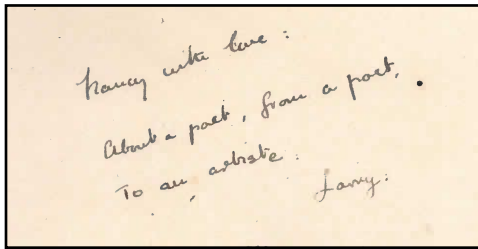 Nancy with love :
About a poet, from a poet,
To an artiste.
Larry.